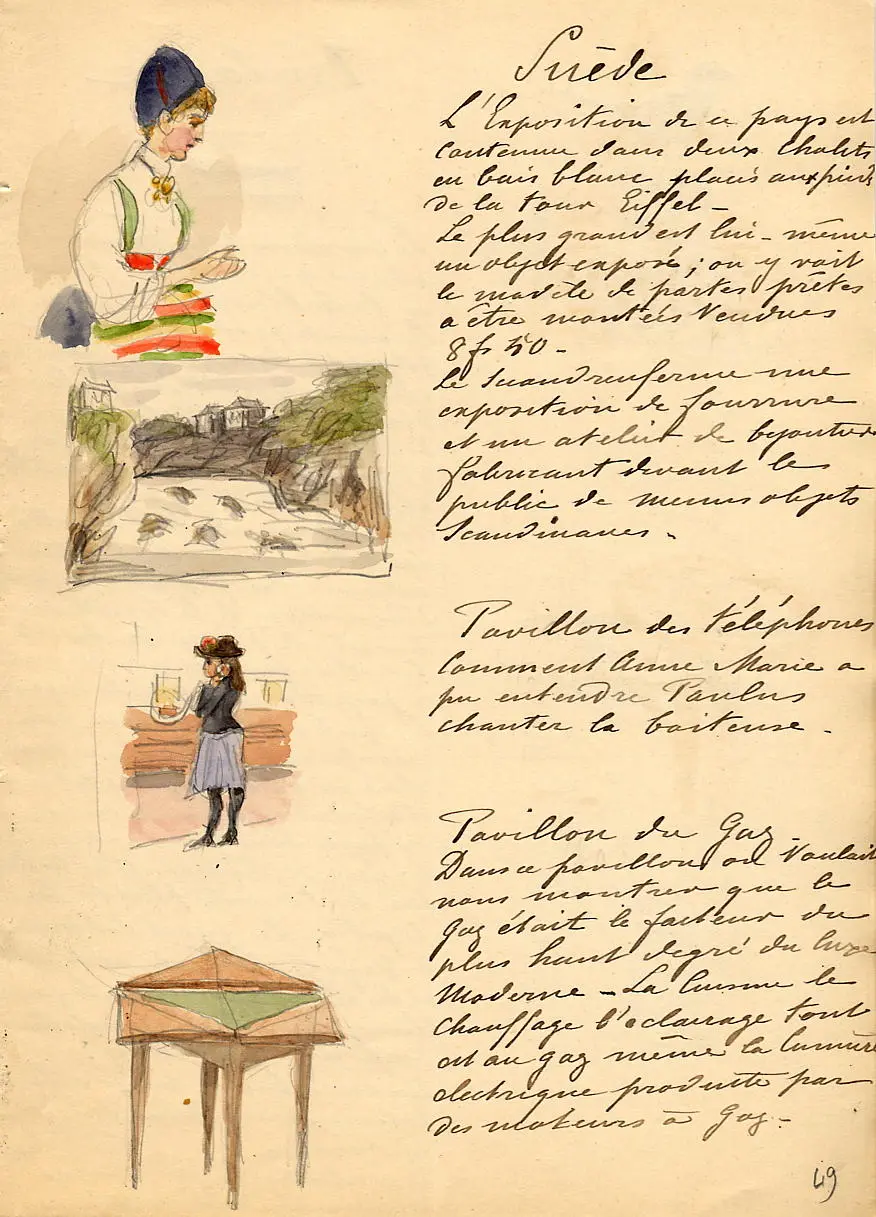 Suède
L'Exposition de ce pays est
contenue dans deux chalets
en bois blanc placés aux pieds
de la tour Eiffel -
Le plus grand est lui-même
un objet exposé ; on y voit
le modèle de portes prêtes
a être montées Vendues
8f 50 -
Le second renferme une
exposition de fourrure
et un atelier de bijoutier
fabricant devant le
public de menus objets
Scandinaves.
Pavillon des téléphones
Comment Anne Marie a
pu entendre Paulus
chanter la boiteuse.
Pavillon du Gaz -
Dans ce pavillon on Voulait
nous montrer que le
Gaz était le facteur du
plus haut degré du luxe
Moderne - La Cuisine le
Chauffage l'eclairage tout
est au gaz même la lumière
electrique produite par
des moteurs à Gaz -
49